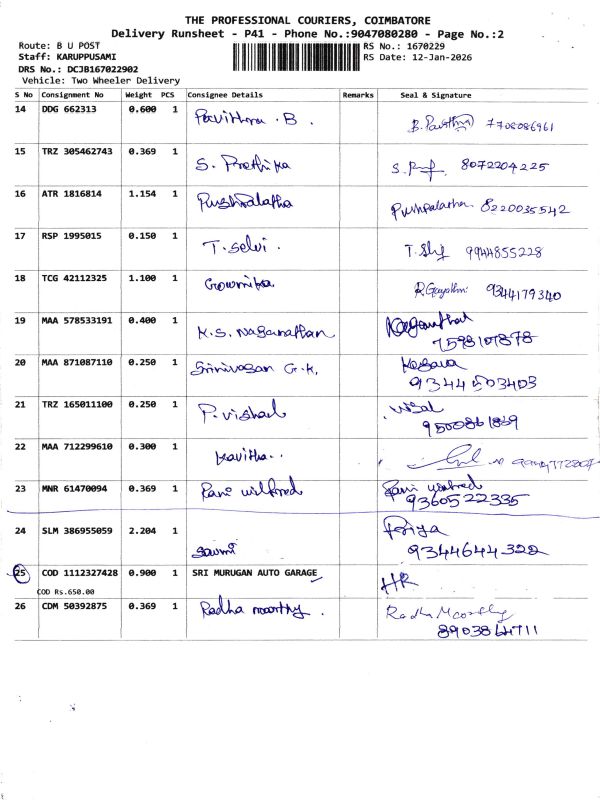 THE PROFESSIONAL COURIERS, COIMBATORE
Delivery Runsheet - P41 - Phone No.:9047080280 - Page No.:2
Route: B U POST
RS No.: 1670229
Staff: KARUPPUSAMI
RS Date: 12-Jan-2026
DRS No.: DCJB167022902
Vehicle: Two Wheeler Delivery
S No Consignment No Weight PCS Consignee Details Remarks Seal & Signature
14 DDG 662313 0.600 1 Pavithra . B . B. Pavithra 7708086961
15 TRZ 305462743 0.369 1 S. Prethika 8072204225
16 ATR 1816814 1.154 1 Pushpalatha Pushpalatha 8220035542
17 RSP 1995015 0.150 1 T. Selvi . 9944855228
18 TCG 42112325 1.100 1 Gowmika R. Gayathri 9344179340
19 MAA 578533191 0.400 1 K.S. Naganathan Naganathan
7598107878
20 MAA 871087110 0.250 1 Srinivasan G.K. Kesava
9344503403
21 TRZ 165011100 0.250 1 P. Vishal
9500861839
22 MAA 712299610 0.300 1 Kavitha..
23 MNR 61470094 0.369 1 Rani wilfred Rani wilfred
9360522335
24 SLM 386955059 2.204 1 Priya
9344644322
25 COD 1112327428 0.900 1 SRI MURUGAN AUTO GARAGE HR
COD Rs.650.00
26 CDM 50392875 0.369 1 Radha moorthy . Radha Moorthy
8903864711